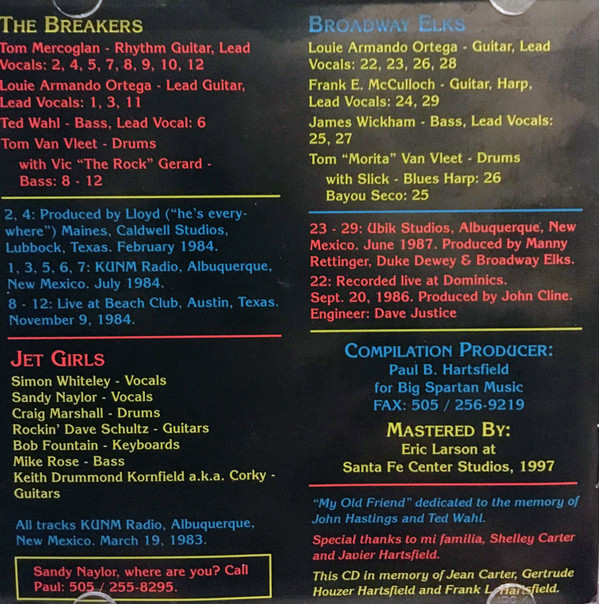 THE BREAKERS
Tom Mercoglan - Rhythm Guitar, Lead
Vocals: 2, 4, 5, 7, 8, 9, 10, 12
Louie Armando Ortega - Lead Guitar,
Lead Vocals: 1, 3, 11
Ted Wahl - Bass, Lead Vocal: 6
Tom Van Vleet - Drums
with Vic "The Rock" Gerard -
Bass: 8 - 12
2, 4: Produced by Lloyd ("he's every-
where") Maines, Caldwell Studios,
Lubbock, Texas. February 1984.
1, 3, 5, 6, 7: KUNM Radio, Albuquerque,
New Mexico. July 1984.
8 - 12: Live at Beach Club, Austin, Texas.
November 9, 1984.
JET GIRLS
Simon Whiteley - Vocals
Sandy Naylor - Vocals
Craig Marshall - Drums
Rockin' Dave Schultz - Guitars
Bob Fountain - Keyboards
Mike Rose - Bass
Keith Drummond Kornfield a.k.a. Corky -
Guitars
All tracks KUNM Radio, Albuquerque,
New Mexico. March 19, 1983.
Sandy Naylor, where are you? Call
Paul: 505 / 255-8295.
BROADWAY ELKS
Louie Armando Ortega - Guitar, Lead
Vocals: 22, 23, 26, 28
Frank E. McCulloch - Guitar, Harp,
Lead Vocals: 24, 29
James Wickham - Bass, Lead Vocals:
25, 27
Tom "Morita" Van Vleet - Drums
with Slick - Blues Harp: 26
Bayou Seco: 25
23 - 29: Ubik Studios, Albuquerque, New
Mexico. June 1987. Produced by Manny
Rettinger, Duke Dewey & Broadway Elks.
22: Recorded live at Dominics.
Sept. 20, 1986. Produced by John Cline.
Engineer: Dave Justice
COMPILATION PRODUCER:
Paul B. Hartsfield
for Big Spartan Music
FAX: 505 / 256-9219
MASTERED BY:
Eric Larson at
Santa Fe Center Studios, 1997
"My Old Friend" dedicated to the memory of
John Hastings and Ted Wahl.
Special thanks to mi familia, Shelley Carter
and Javier Hartsfield.
This CD in memory of Jean Carter, Gertrude
Houzer Hartsfield and Frank L. Hartsfield.